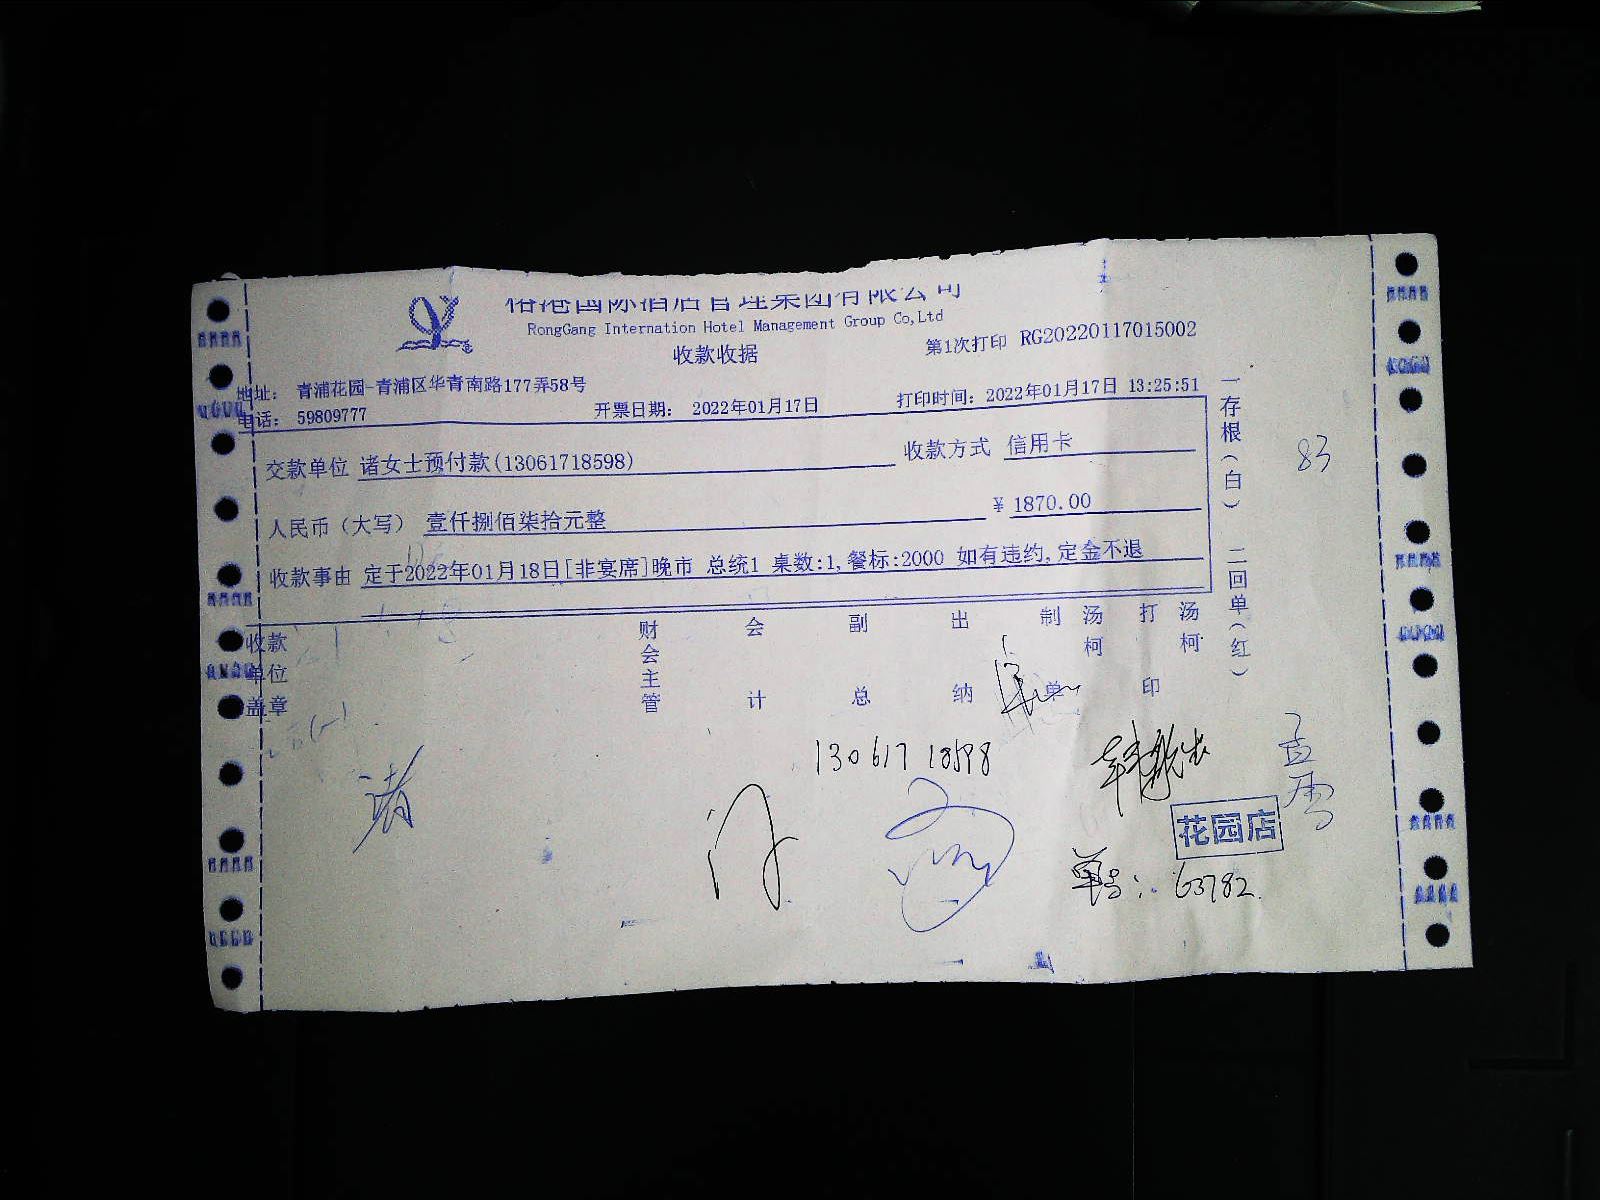 国际酒店管理集团有限公司
RongGang Internation Hotel Management Group Co,Ltd
收款收据
第1次打印 RG20220117015002
地址： 青浦花园-青浦区华青南路177弄58号
电话： 59809777
开票日期： 2022年01月17日
打印时间：2022年01月17日 13:25:51
交款单位 诸女士预付款(13061718598)
收款方式 信用卡
人民币（大写） 壹仟捌佰柒拾元整
¥ 1870.00
收款事由 定于2022年01月18日[非宴席]晚市 总统1 桌数:1,餐标:2000 如有违约,定金不退
一存根（白） 二回单（红）
83
收款单位盖章
财会主管
会计
副总
出纳
制单
汤柯
打印
汤柯
13061718598
诸
花园店
单号：63782